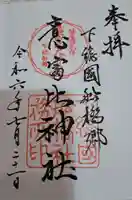 奉拝
下総國船橋郷
意富比神社
令和六年七月二十一日